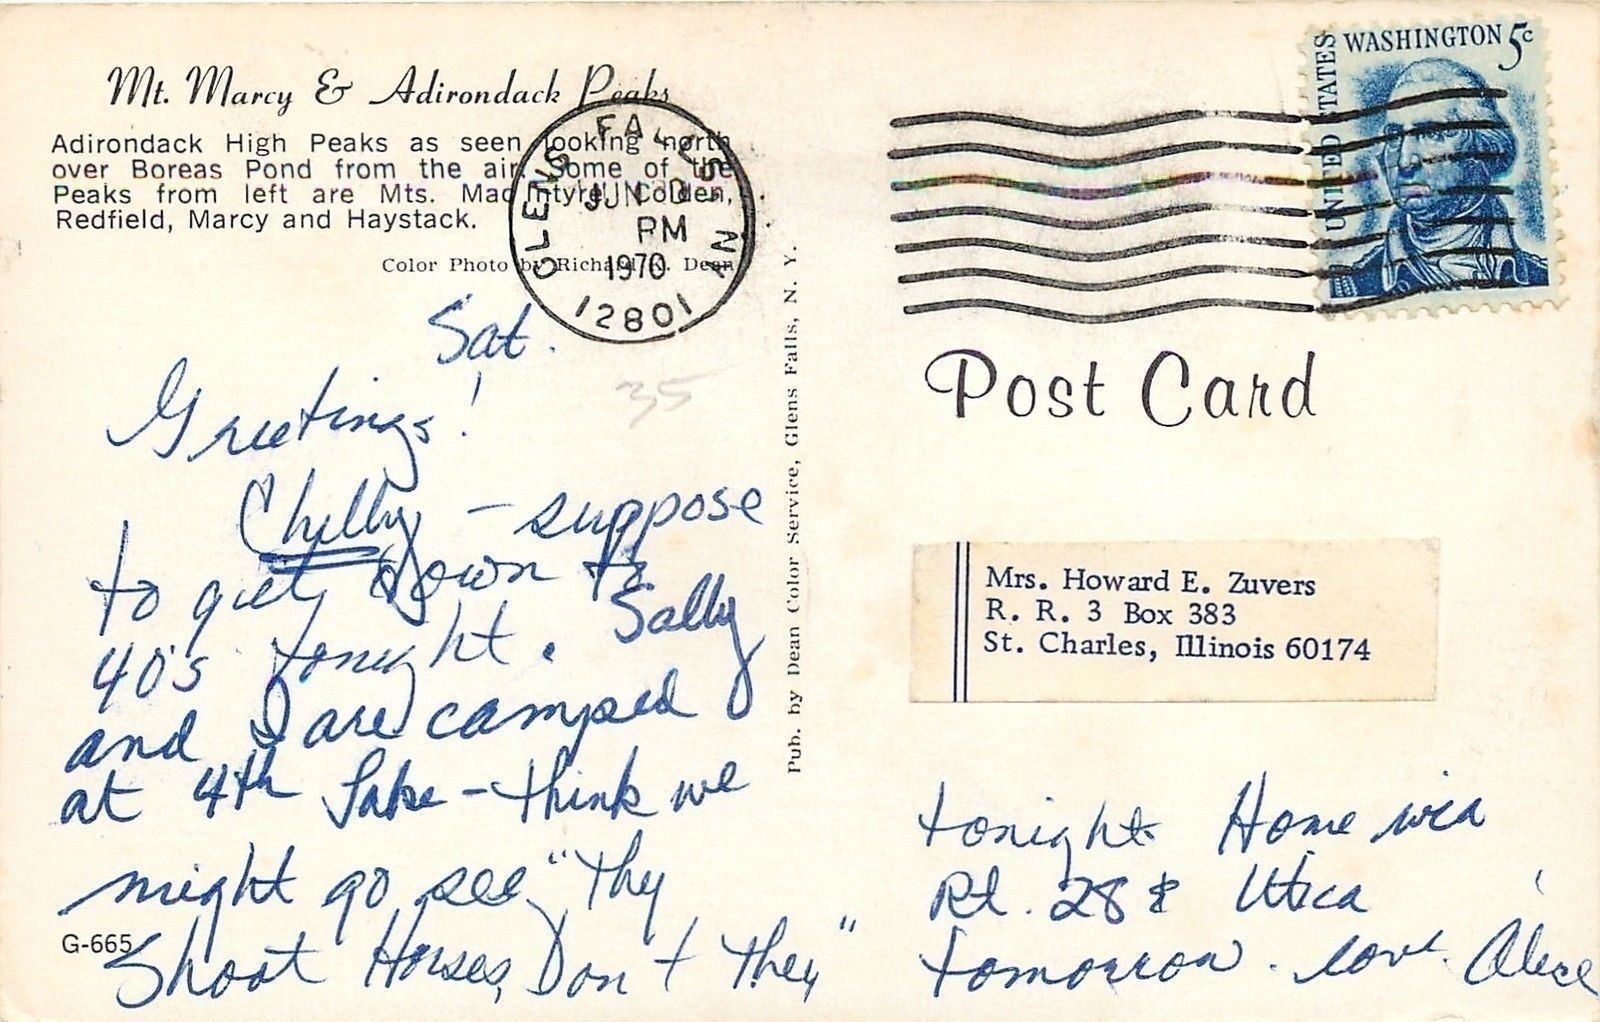 Mt. Marcy & Adirondack Peaks
Adirondack High Peaks as seen looking north
over Boreas Pond from the air. Some of the
Peaks from left are Mts. MacIntyre, Colden,
Redfield, Marcy and Haystack.
Color Photo by Richard K. Dean
GLENS FALLS NY
JUN
PM
1970
12801
UNITED STATES
WASHINGTON 5c
Sat.
35
Greetings!
Chilly - suppose
to get down to
40's tonight. Sally
and I are camped
at 4th Lake - think we
might go see "They
Shoot Horses, Don't They"
G-665
Pub. by Dean Color Service, Glens Falls, N. Y.
Post Card
Mrs. Howard E. Zuvers
R. R. 3 Box 383
St. Charles, Illinois 60174
tonight. Home via
Rt. 28 & Utica
tomorrow. Love. Alice